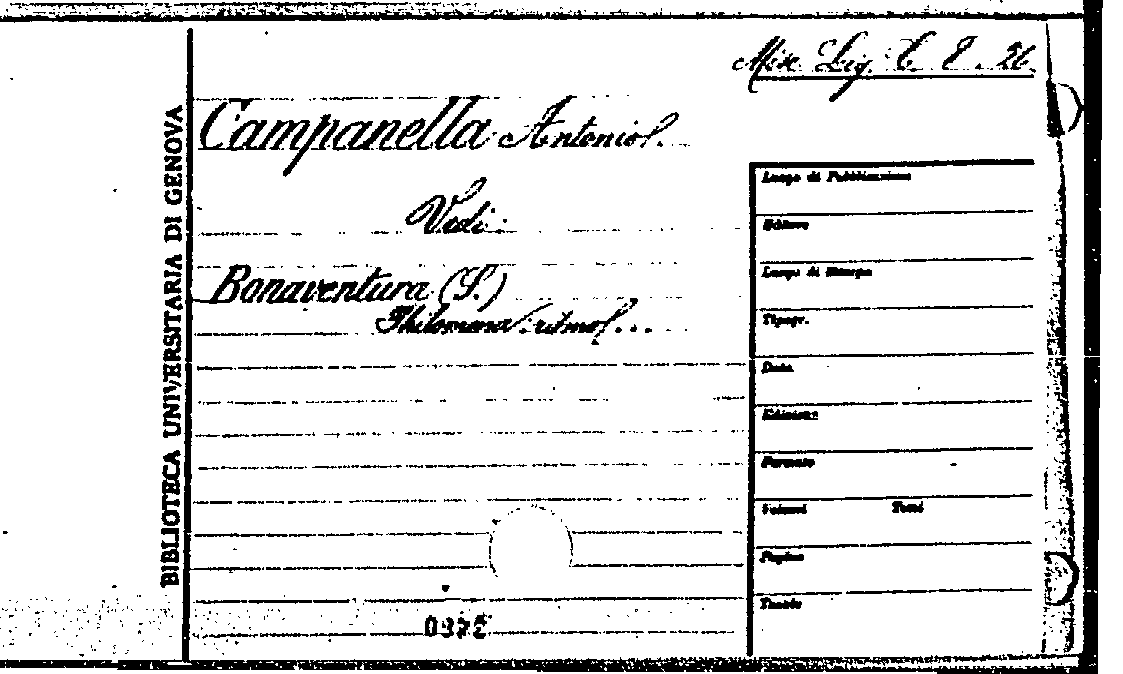 Misc. Lig. C. 8. 26.
BIBLIOTECA UNIVERSITARIA DI GENOVA
Campanella Antonio.
Vedi:
Bonaventura (S.)
Philomena: ritmo...
Luogo di Pubblicazione
Editore
Luogo di Stampa
Tipogr.
Data
Edizione
Formato
Volumi Tomi
Pagine
Tavole